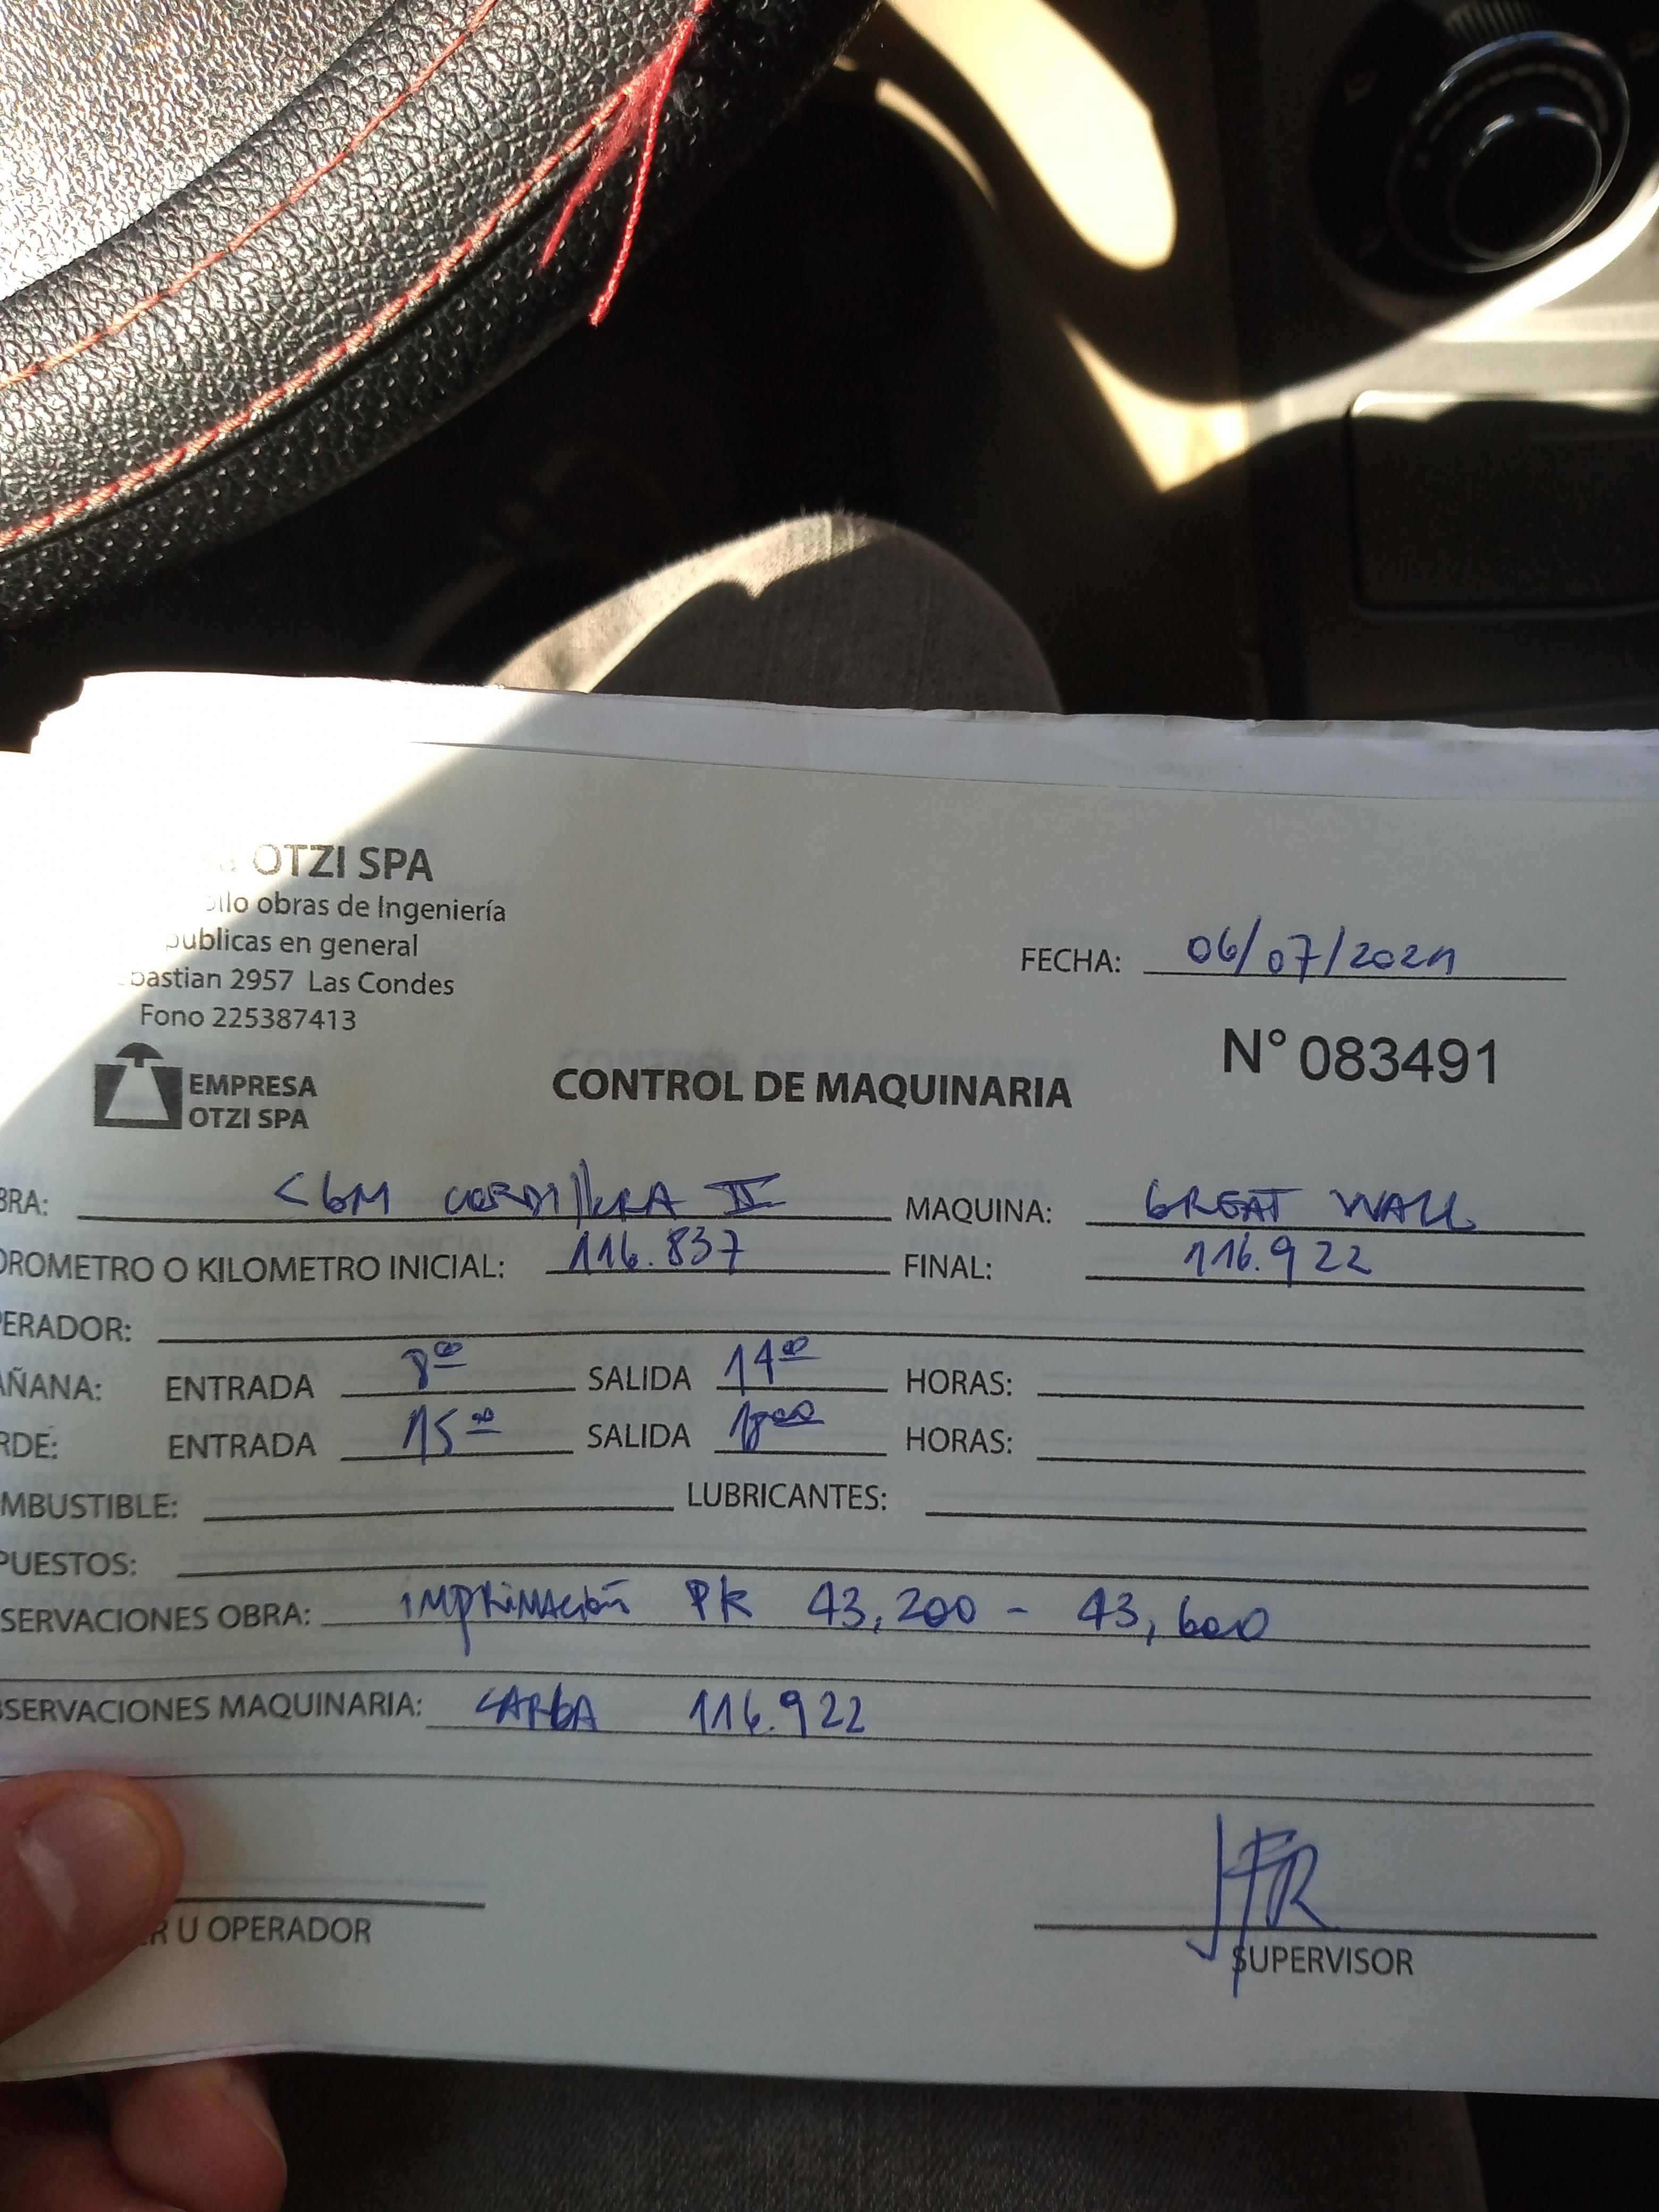 OTZI SPA
obras de Ingeniería
publicas en general
bastian 2957 Las Condes
Fono 225387413
FECHA: 06/07/2021
N° 083491
EMPRESA
OTZI SPA
CONTROL DE MAQUINARIA
BRA: CGM CORDILLERA II MAQUINA: GREAT WALL
OROMETRO O KILOMETRO INICIAL: 116.837 FINAL: 116.922
ERADOR:
AÑANA: ENTRADA 800 SALIDA 1400 HORAS:
RDE: ENTRADA 1500 SALIDA 1800 HORAS:
MBUSTIBLE: LUBRICANTES:
PUESTOS:
SERVACIONES OBRA: imprimación PK 43,200 - 43,600
SERVACIONES MAQUINARIA: CARGA 116.922
R U OPERADOR
SUPERVISOR